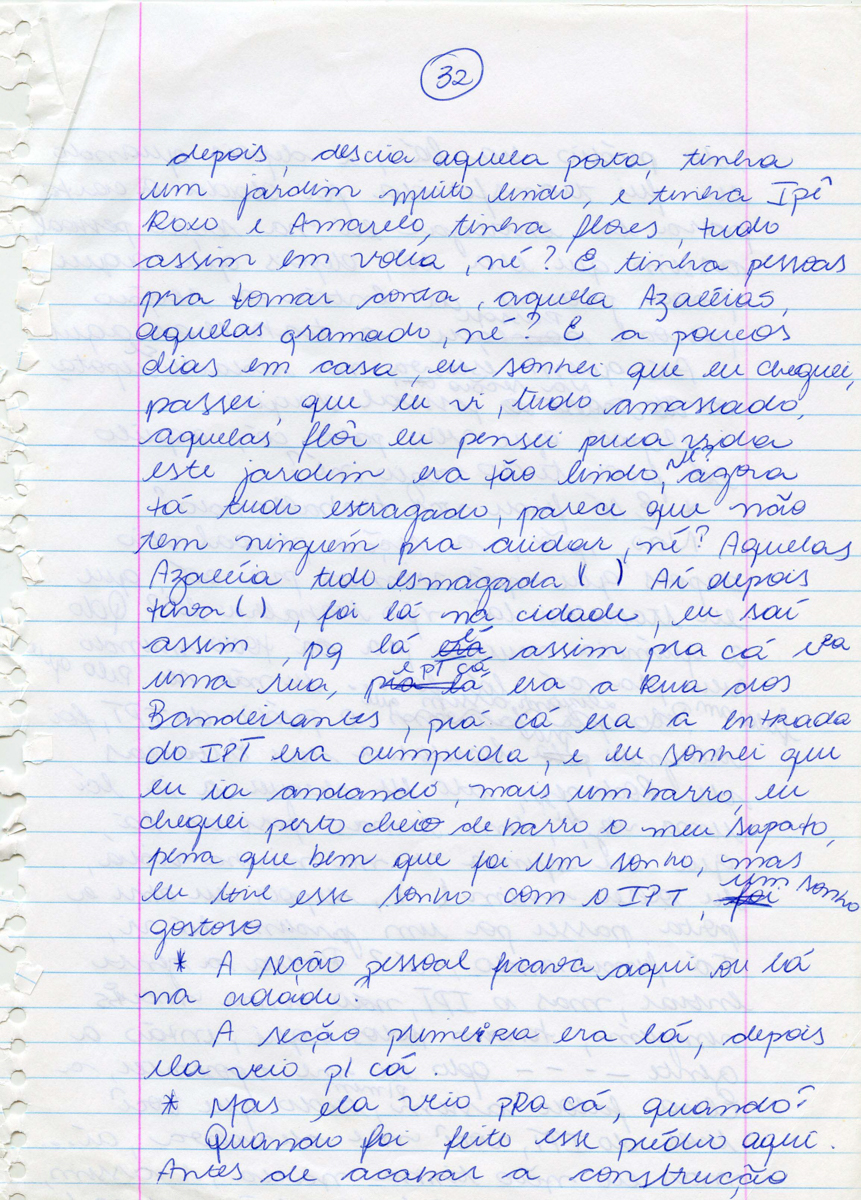 32
depois, descia aquela porta, tinha
um jardim muito lindo, e tinha Ipê
Roxo e Amarelo, tinha flores, tudo
assim em volta, né? E tinha pessoas
pra tomar conta, aquela Azaléias,
aquelas gramado, né? E a poucos
dias em casa, eu sonhei que eu cheguei,
passei, que eu vi, tudo amassado,
aquelas flôr eu pensei puxa vida
este jardim era tão lindo, né? agora
tá tudo estragado, parece que não
tem ninguém pra cuidar, né? Aquelas
Azaléia tudo esmagada ( ) Aí depois
tava ( ), foi lá na cidade, eu saí
assim, pq lá é assim pra cá era
uma rua, e PT cá era a Rua dos
Bandeirantes, prá cá era a entrada
do IPT era cumprida, e eu sonhei que
eu ia andando, mais um barro, eu
cheguei perto cheio de barro o meu sapato,
pena que bem que foi um sonho, mas
eu tive esse sonho com o IPT, um sonho
gostoso.
* A seção pessoal ficava aqui ou lá
na cidade?
A seção primeira era lá, depois
ela veio p/ cá.
* Mas ela veio pra cá, quando?
Quando foi feito esse prédio aqui.
Antes de acabar a construção